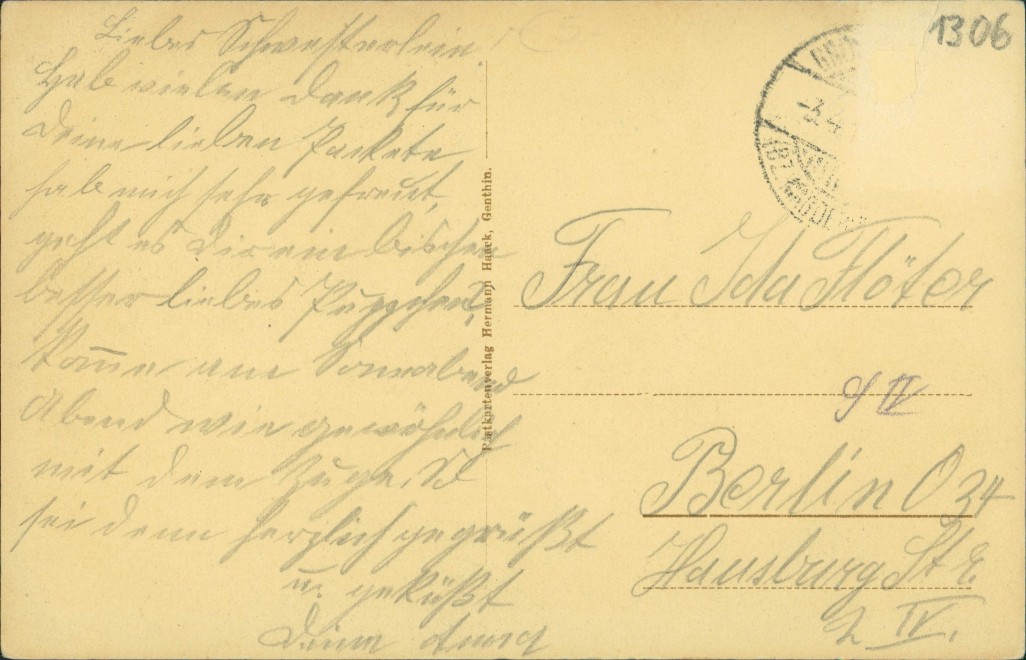 1306
Liebes Schwesterlein!
Hab vielen Dank für
Deine lieben Packete
hab mich sehr gefreut,
geht es Dir ein bischen
besser liebes Puppchen?
Komme am Sonnabend
Abend wie gewöhnlich
mit dem Zuge. 
sei denn herzlich gegrüßt
u. geküßt
Deine
Postkartenverlag Hermann Haack, Genthin.
Frau Ida Flöter
IV
Berlin O 34
Hausburg Str
IV.